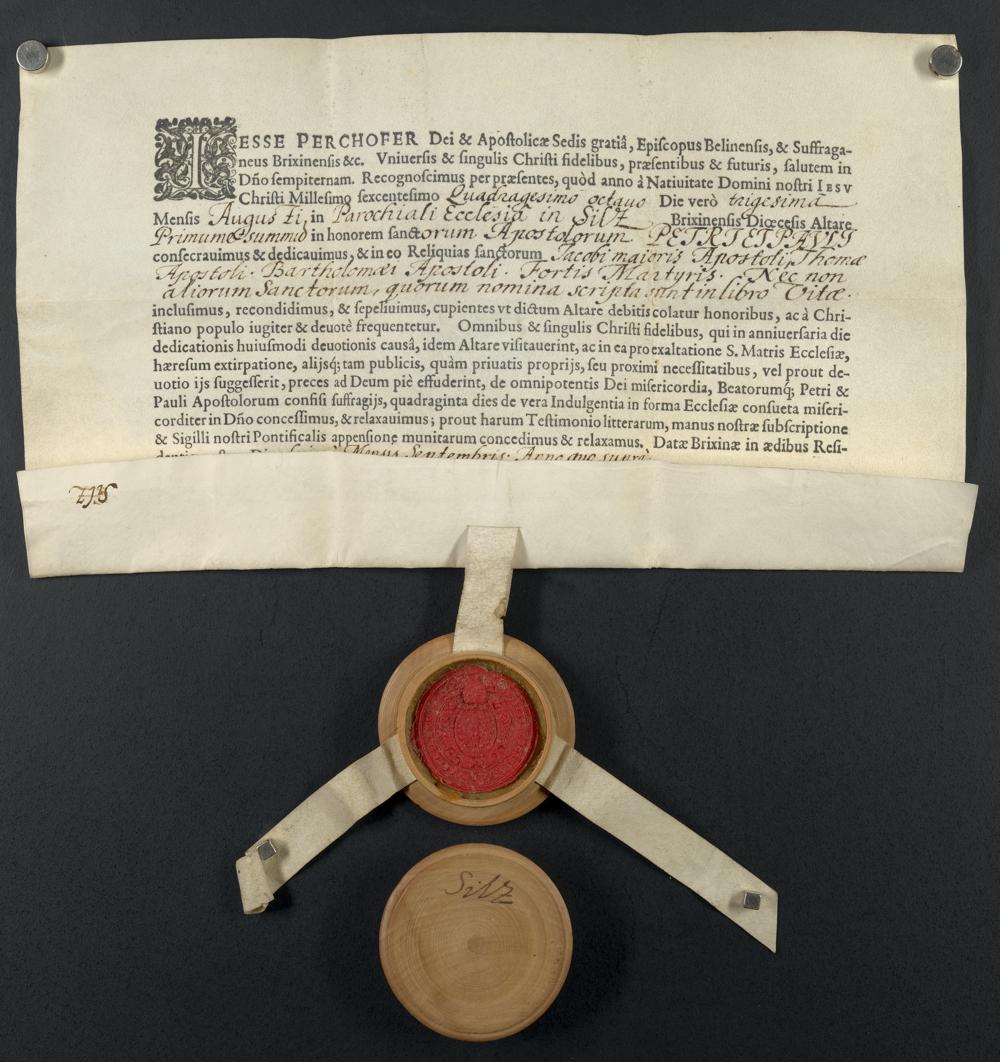 IESSE PERCHOFER Dei & Apoſtolicæ Sedis gratiâ, Epiſcopus Belinenſis, & Suffraga-
neus Brixinenſis &c. Vniuerſis & ſingulis Chriſti fidelibus, præſentibus & futuris, ſalutem in
Dño ſempiternam. Recognoſcimus per præſentes, quòd anno à Natiuitate Domini noſtri IESV
Chriſti Milleſimo ſexcenteſimo Quadragesimo octauo Die verò trigesima
Mensis Augusti, in Parochiali Ecclesia in Silz Brixinenſis Diœceſis Altare
Primum & summum in honorem ſanctorum Apostolorum PETRI ET PAVLI
conſecrauimus & dedicauimus, & in eo Reliquias ſanctorum Jacobi maioris Apostoli, Thomæ
Apostoli. Bartholomæi Apostoli. Fortis Martyris. Nec non
aliorum Sanctorum, quorum nomina scripta sunt in libro Vitæ.
incluſimus, recondidimus, & ſepeliuimus, cupientes vt dictum Altare debitis colatur honoribus, ac à Chri-
ſtiano populo iugiter & deuotè frequentetur. Omnibus & ſingulis Chriſti fidelibus, qui in anniuerſaria die
dedicationis huiuſmodi deuotionis causâ, idem Altare viſitauerint, ac in ea pro exaltatione S. Matris Eccleſiæ,
hæreſum extirpatione, alijsq́; tam publicis, quàm priuatis proprijs, ſeu proximi neceſſitatibus, vel prout de-
uotio ijs ſuggeſſerit, preces ad Deum piè effuderint, de omnipotentis Dei miſericordia, Beatorumq́; Petri &
Pauli Apoſtolorum confiſi ſuffragijs, quadraginta dies de vera Indulgentia in forma Eccleſiæ conſueta miſeri-
corditer in Dño conceſſimus, & relaxauimus; prout harum Teſtimonio litterarum, manus noſtræ ſubſcriptione
& Sigilli noſtri Pontificalis appenſione munitarum concedimus & relaxamus. Datæ Brixinæ in ædibus Reſi-
Mensis Septembris. Anno quo suprà.
Silz